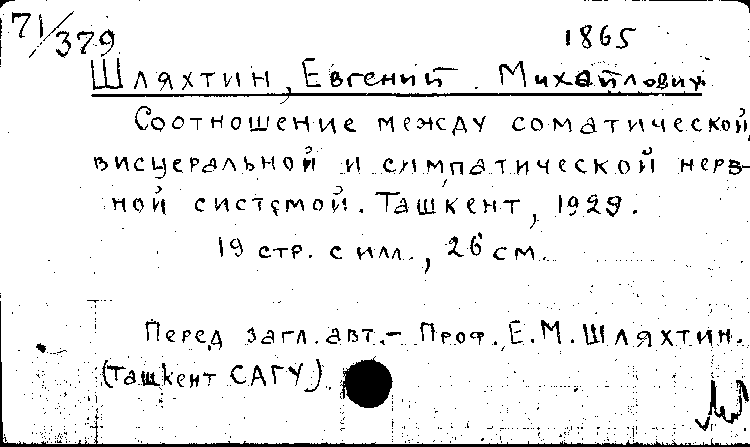 71/379
1865
Шляхтин, Евгений Михайлович
Соотношение между соматической,
висцеральной и симпатической нерв-
ной системой. Ташкент, 1929.
19 стр. с илл., 26 см.
Перед загл. авт.- Проф. Е.М.Шляхтин.
(Ташкент САГУ).